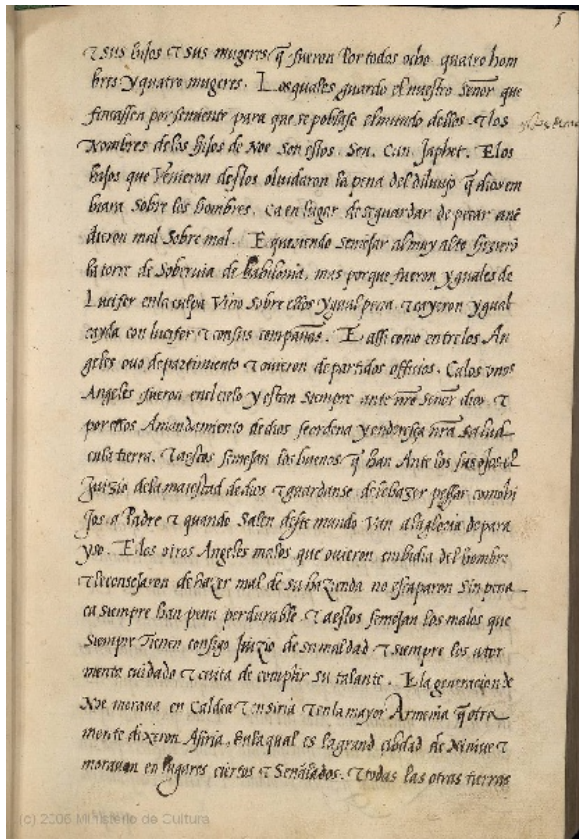 5
⁊ sus hijos ⁊ sus mugeres q̃ fueron por todos ocho quatro hom
bres y quatro mugeres. Los quales guardo el nuestro Señor que
fincassen por semiente para que se poblase el mundo dellos. ⁊ los
Nombres de los hijos de Noe son estos. Sen. Can. Japhet. E los
hijos que Venieron destos oluidaron la pena del diluujo q̃ dios em
biara sobre los hombres. ca en lugar de se guardar de pecar añe
dieron mal sobre mal. E queriendo semejar al muy alto hizierõ
la torre de Soberuia de babilonia, mas porque fueron yguales de
Lucifer en la culpa Vino sobre ellos ygual pena. ⁊ cayeron ygual
cayda con lucifer ⁊ con sus compañas. E assi como entre los An
geles ouo departimiento ⁊ ouieron departidos officios. Ca los vnos
Angeles fueron en el cielo y estan siempre ante nr̃o Señor dios ⁊
por ellos Amandamiento de dios se ordena y enderesça nr̃a salud
en la tierra. ⁊ a estos semejan los buenos q̃ han Ante los sus ojos el
Juizio de la majestad de dios ⁊ guardanse de le hazer pessar como hi
jos a Padre ⁊ quando Salen deste mundo Van a la gloria de para
yso. E los otros Angeles malos que ouieron embidia del hombre
⁊ le consejaron de hazer mal de su hazienda no escaparon sin pena
ca siempre han pena perdurable ⁊ a estos semejan los malos que
siempre Tienen consigo Juizio de su maldad ⁊ siempre los ator
menta cuidado ⁊ cuita de complir su talante. E la generacion de
Noe moraua en Caldea ⁊ en siria ⁊ en la mayor Armenia q̃ otra
mente dixeron Asiria, en la qual es la grand cibdad de Niniue ⁊
morauan en lugares ciertos ⁊ Señalados. ⁊ todas las otras tierras
(c) 2006 Ministerio de Cultura